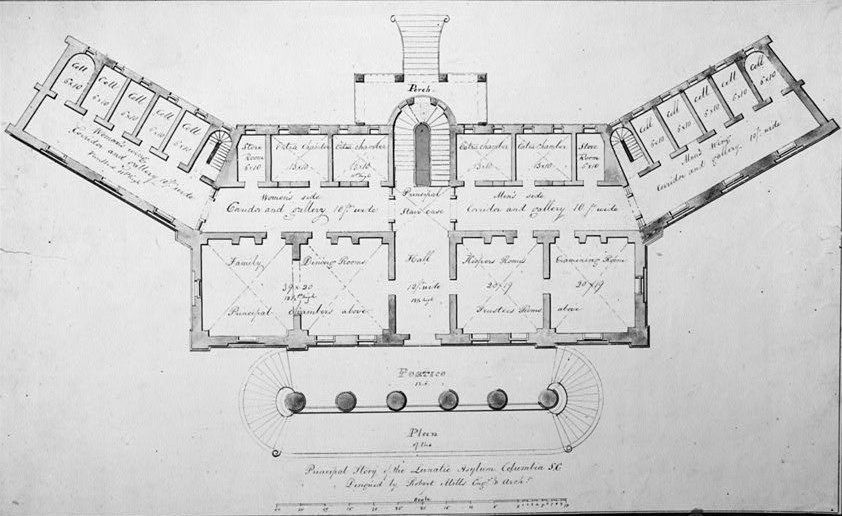 Porch
Cell
6x10
Cell
6x10
Cell
6x10
Cell
6x10
Cell
6x10
Women's Wing
Corridor and gallery 10ft wide
Store
Room
6x10
Extra chamber
13x10
Extra chamber
13x10
Extra chamber
13x10
Extra chamber
13x10
Store
Room
6x10
Cell
6x10
Cell
6x10
Cell
6x10
Cell
6x10
Cell
6x10
Men's Wing
Corridor and gallery 10ft wide
Women's side
Corridor and gallery 10ft wide
Principal
Stair case
Men's side
Corridor and gallery 10ft wide
Family Dining Rooms
39x20
Principal Chambers above
Hall
12ft wide
Keepers Rooms
20x19
Trustees Rooms above
Examining Room
20x19
Portico
Plan
of the
Principal Story of the Lunatic Asylum Columbia S.C
Designed by Robert Mills Engr & Archt
Scale